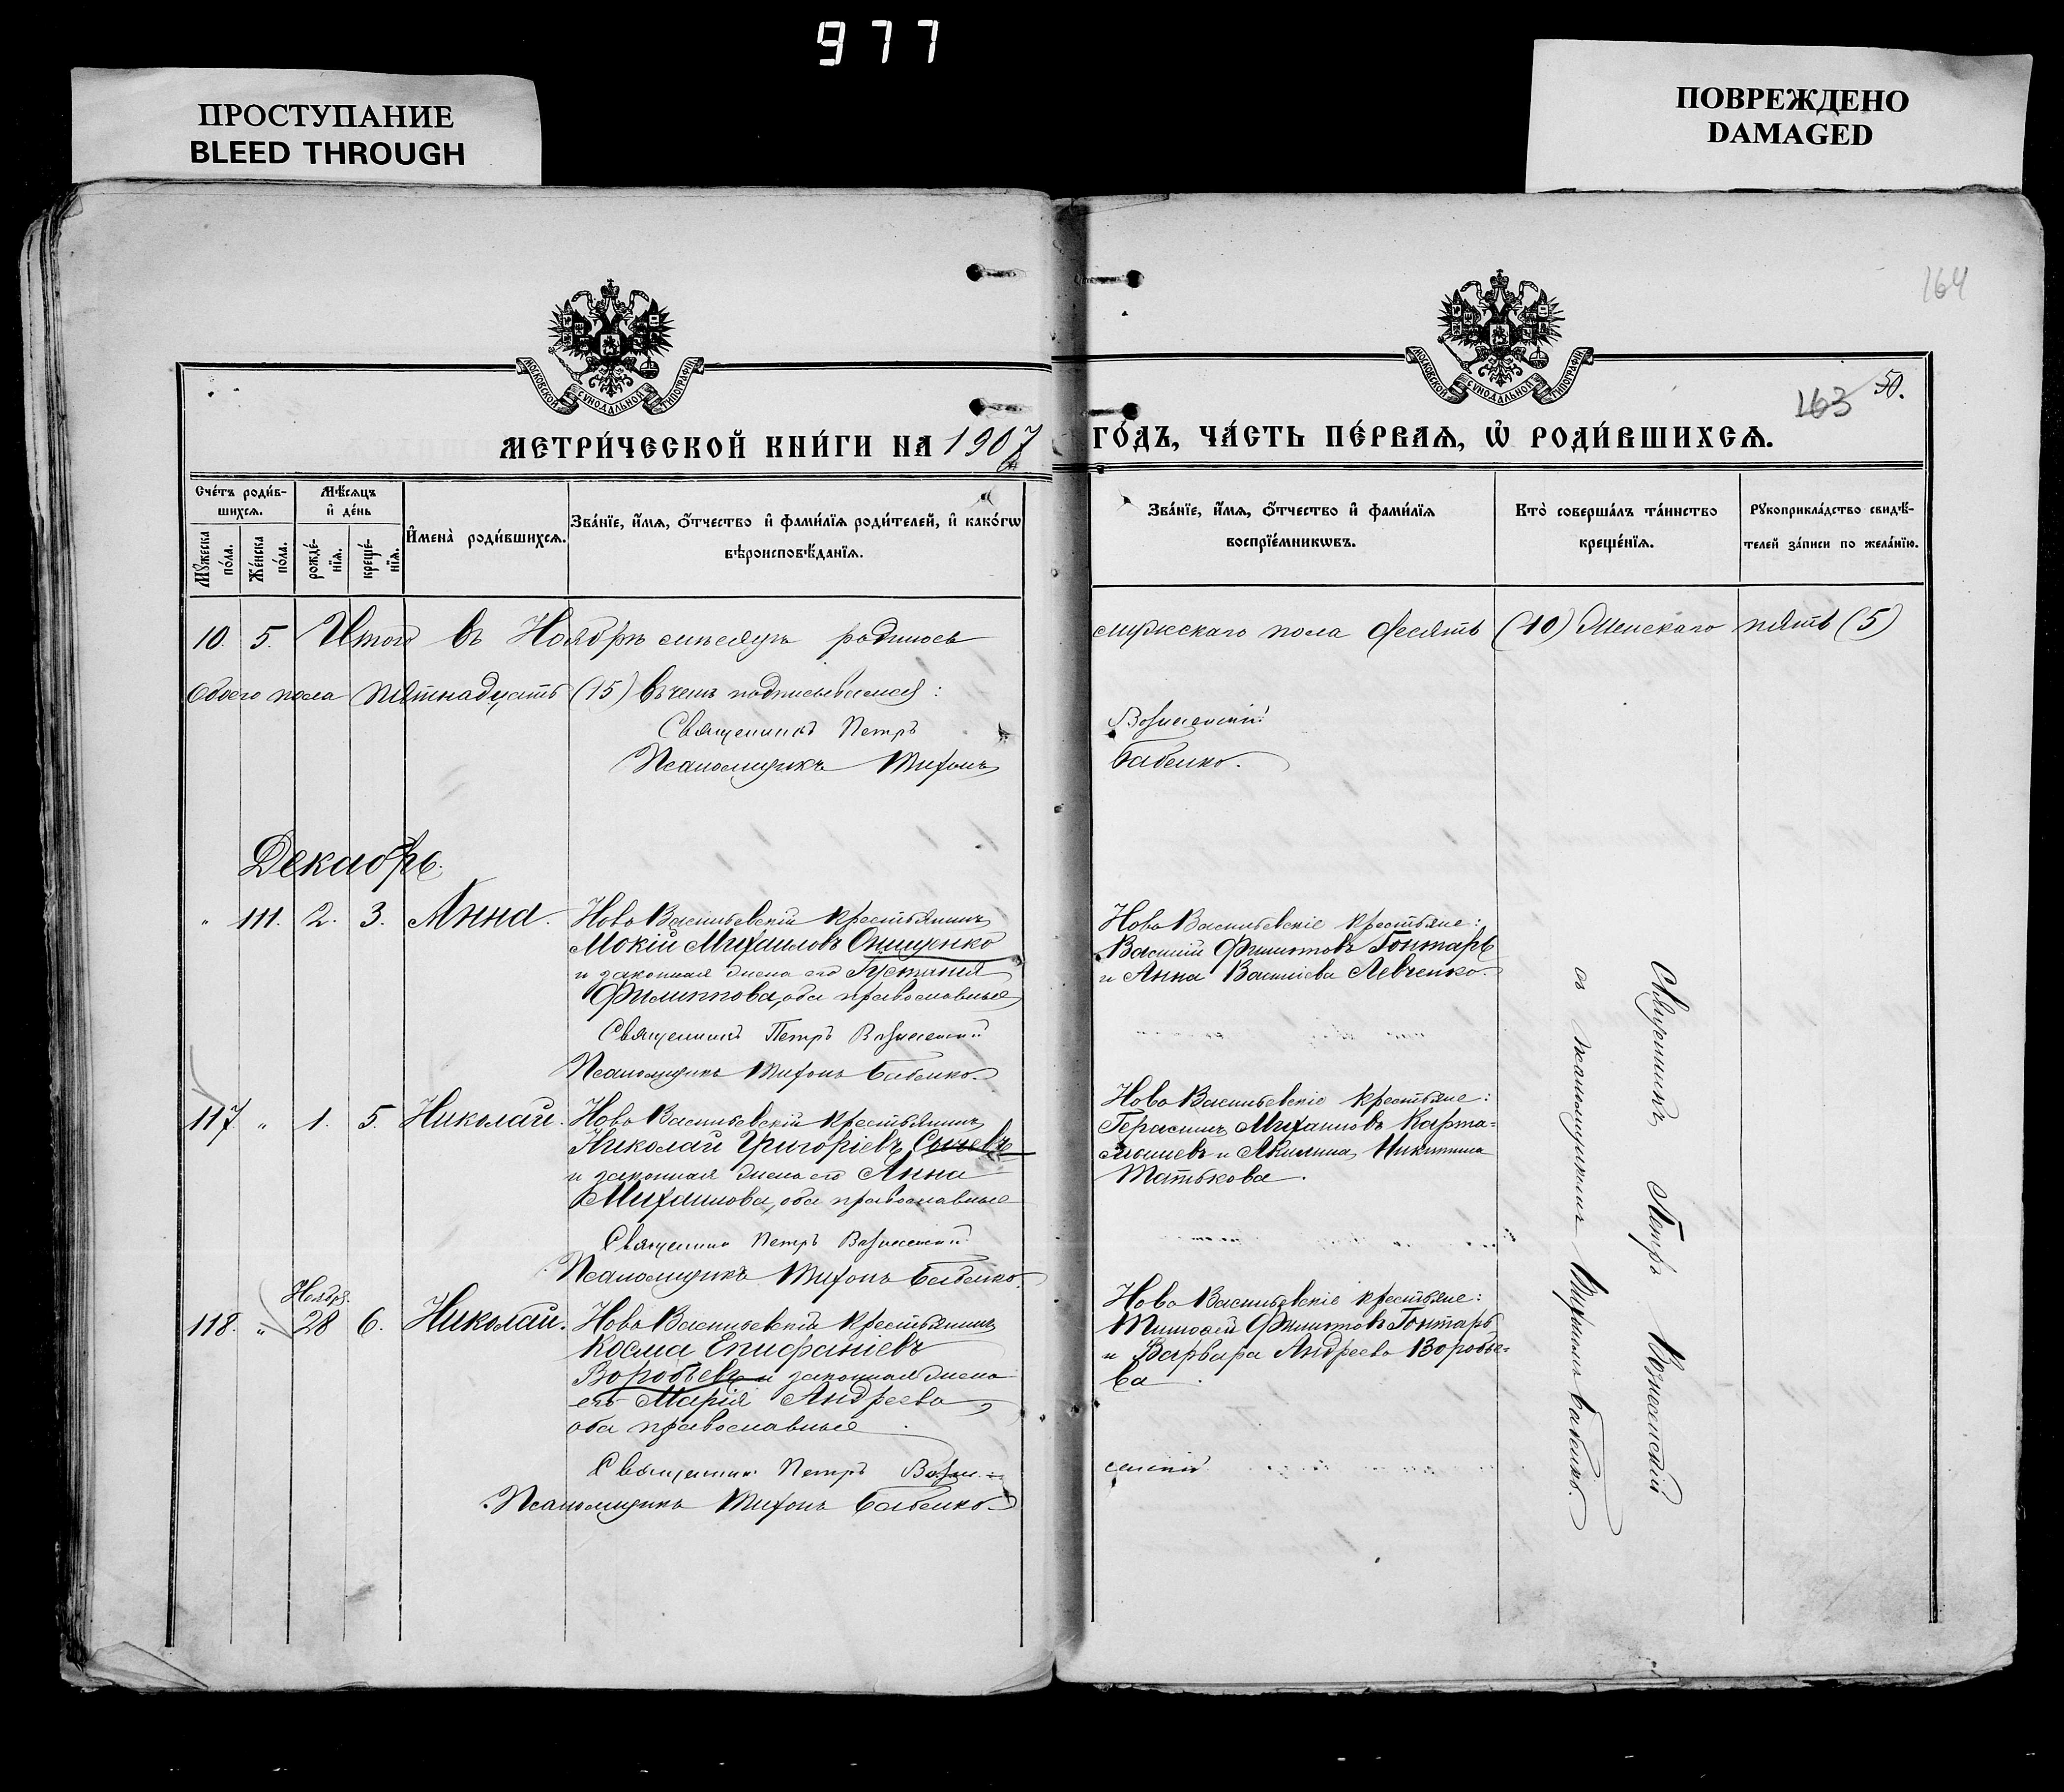 977
ПРОСТУПАНИЕ
BLEED THROUGH
ПОВРЕЖДЕНО
DAMAGED
164
МОСКОВСКОЙ СѴНОДАЛЬНОЙ ТИПОГРАФІИ
МОСКОВСКОЙ СѴНОДАЛЬНОЙ ТИПОГРАФІИ
163 50.
МЕТРИ́ЧЕСКОЙ КНИ́ГИ НА 1907
ГО́ДЪ, ЧА́СТЬ ПЕ́РВАѦ, Ѡ҆ РОДИ́ВШИХСѦ.
Сче́тъ роди́в-
шихсѧ.
Мꙋ́жеска по́ла.
Же́нска по́ла.
Мѣ́сѧцъ
и҆ де́нь
рожде́-
нїѧ.
креще́-
нїѧ.
И҆мена̀ роди́вшихсѧ.
Зва́нїе, и҆́мѧ, ѻ҆́тчество и҆ фами́лїѧ роди́телей, и҆ како́гѡ
вѣроисповѣ́данїѧ.
Зва́нїе, и҆́мѧ, ѻ҆́тчество и҆ фами́лїѧ
воспрїе́мникѡвъ.
Кто̀ соверша́лъ та́инство
креще́нїѧ.
Рꙋкоприкла́дство свидѣ́-
телей за́писи по жела́нїю.
10. 5. Итого въ Ноябрѣ мѣсяцѣ родилось
мужскаго пола десять (10) Женскаго пять (5)
Обоего пола пятнадцать (15) въ чемъ подписываемся:
Священникъ Петръ
Вознесенскій
Псаломщикъ Тихонъ
Бабенко.
Декабрь.
" 111. 2. 3. Анна.
Ново Васильевскій крестьянинъ
Мокій Михаиловъ Онищенко
и законная жена его Густиния
Филиппова, оба православные
Священникъ Петръ Вознесенскій
Псаломщикъ Тихонъ Бабенко.
Ново Васильевскіе крестьяне:
Василій Филиповъ Гонтарь
и Анна Василіева Левченко.
117. " 1. 5. Николай.
Ново Васильевскій крестьянинъ
Николай Григоріевъ Сычевъ
и законная жена его Анна
Михаилова, оба православные
Священникъ Петръ Вознесенскій
Псаломщикъ Тихонъ Бабенко.
Ново Васильевскіе крестьяне:
Герасимъ Михаиловъ Карта-
мышевъ и Акилина Никитина
Татькова.
Ноябр.
118. " 28 6. Николай.
Ново Васильевскій крестьянинъ
Косма Епифаніевъ
Воробьевъ и законная жена
его Марія Андреева,
оба православные
Священникъ Петръ Возне-
сенскій
Псаломщикъ Тихонъ Бабенко.
Ново Васильевскіе крестьяне:
Тимофей Филиповъ Гонтарь
и Варвара Андреева Воробье-
ва.
Священникъ Петръ Вознесенскій
съ псаломщикомъ Тихономъ Бабенко.